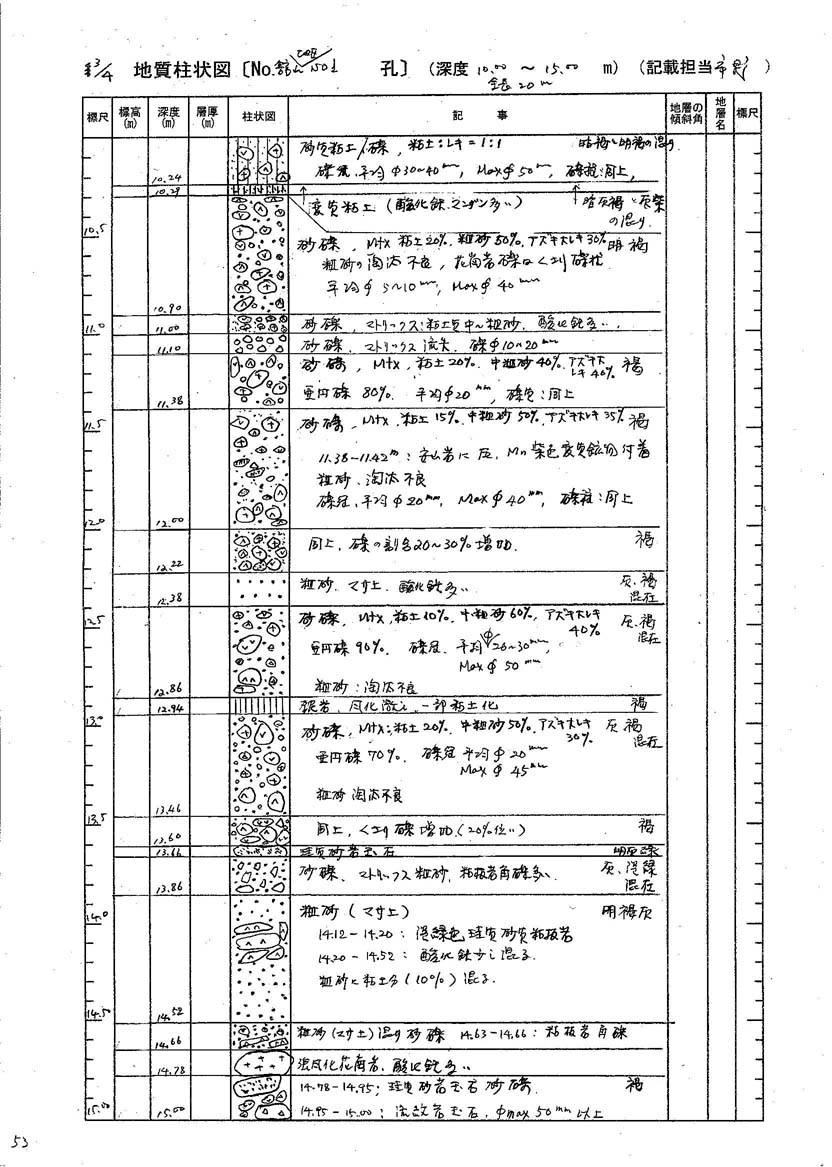 3/4 地質柱状図〔No. 孔〕(深度 10.00 ~ 15.00 m)(記載担当 )
全長 20 m
標尺 標高(m) 深度(m) 層厚(m) 柱状図 記事 地層の傾斜角 地層名 標尺
砂質粘土/礫, 粘土:レキ=1:1 暗褐と明褐の混り
礫径, 平均φ30~40mm, Max φ 50mm, 礫種:同上,
10.24
10.29
変質粘土 (酸化鉄, マンガン多い) 暗灰褐と灰紫の混り
10.5
砂礫, Mtx 粘土20%, 粗砂50%, アズキ大レキ30% 明褐
粗砂の淘汰不良, 花崗岩礫はくさり礫状
平均φ 5~10mm, Max φ 40mm
10.90
11.0 11.00 砂礫, マトリックス:粘土質中~粗砂, 酸化鉄多い,
11.10 砂礫, マトリックス流失, 礫φ10~20mm
砂礫, Mtx, 粘土20%, 中粗砂40%, アズキ大レキ40% 褐
亜円礫 80%, 平均φ20mm, 礫種:同上
11.38
11.5
砂礫, Mtx, 粘土15%, 中粗砂50%, アズキ大レキ35% 褐
11.38-11.42m: 安山岩に灰, Mn染色変質鉱物付着
粗砂, 淘汰不良
礫径, 平均φ20mm, Max φ40mm, 礫種:同上
12.0 12.00
同上, 礫の割合20~30%増加. 褐
12.22
粗砂, マサ土, 酸化鉄多い 灰, 褐混在
12.38
12.5
砂礫, Mtx, 粘土10%, 中粗砂60%, アズキ大レキ40% 灰, 褐混在
亜円礫 90%, 礫径, 平均φ20~30mm,
Max φ 50mm
粗砂:淘汰不良
12.86
12.94 風化激しい, 一部粘土化 褐
13.0
砂礫, Mtx:粘土20%, 中粗砂50%, アズキ大レキ30% 灰, 褐混在
亜円礫 70%, 礫径 平均φ20mm
Max φ 45mm
粗砂 淘汰不良
13.46
13.5
同上, くさり礫増加(20%位い) 褐
13.60
13.66 珪質砂岩玉石 明灰緑
砂礫, マトリックス粗砂, 粘板岩角礫多い, 灰, 淡緑混在
13.86
14.0
粗砂 (マサ土) 明褐灰
14.12-14.20: 淡緑色珪質砂質粘板岩
14.20-14.52: 酸化鉄少し混る.
粗砂に粘土分(10%)混る.
14.5 14.52
粗砂(マサ土)混り砂礫 14.63-14.66: 粘板岩角礫
14.66
強風化花崗岩, 酸化鉄多い
14.78
14.78-14.95; 珪質砂岩玉石砂礫. 褐
15.00 15.00 14.95-15.00: 玉石, φmax 50mm以上
53